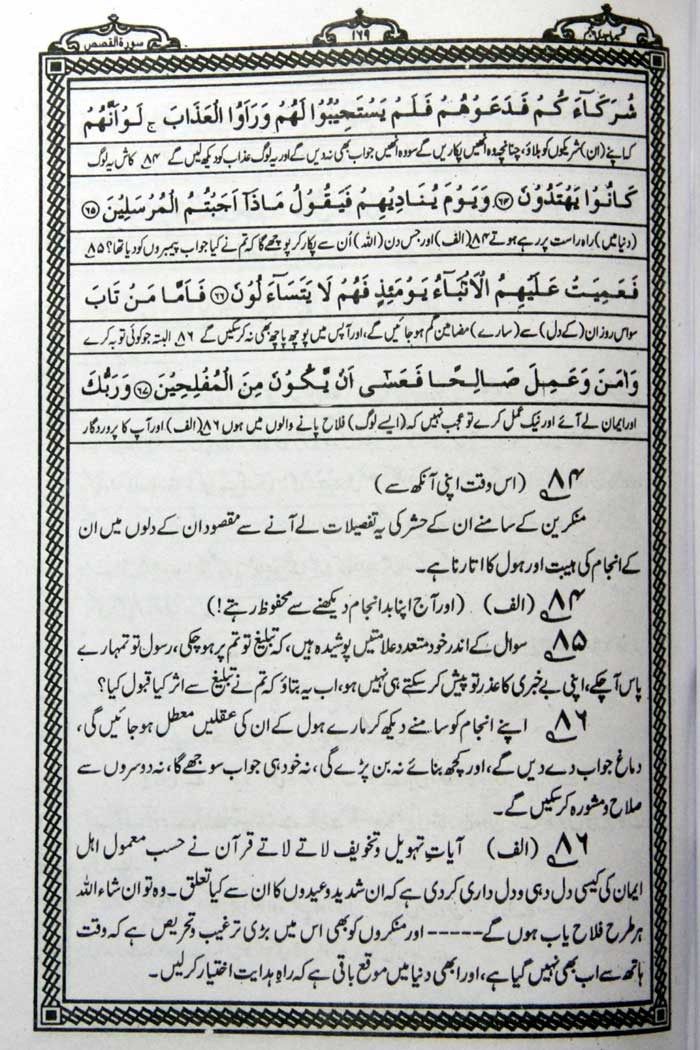 سورۃ القصص
۱۶۹
شُرَكَآءَ كُمْ فَدَعَوْهُمْ فَلَمْ يَسْتَجِيْبُوْا لَهُمْ وَرَاَوُا الْعَذَابَ ج لَوْ اَنَّهُمْ
کہ اپنے (ان) شریکوں کو بلاؤ، چنانچہ وہ انھیں پکاریں گے سو وہ انھیں جواب بھی نہ دیں گے اور یہ لوگ عذاب کو دیکھ لیں گے ۸۴ کاش یہ لوگ
كَانُوْا يَهْتَدُوْنَ ۶۴ وَيَوْمَ يُنَادِيْهِمْ فَيَقُوْلُ مَاذَآ اَجَبْتُمُ الْمُرْسَلِيْنَ ۶۵
(دنیا میں) راہ راست پر رہے ہوتے ۸۴ (الف) اور جس دن (اللہ) اُن سے پکار کر پوچھے گا کہ تم نے کیا جواب پیمبروں کو دیا تھا؟ ۸۵
فَعَمِيَتْ عَلَيْهِمُ الْاَنْۢبَآءُ يَوْمَئِذٍ فَهُمْ لَا يَتَسَآءَلُوْنَ ۶۶ فَاَمَّا مَنْ تَابَ
سو اس روز ان (کے دل) سے (سارے) مضامین گم ہو جائیں گے، اور آپس میں پوچھ پاچھ بھی نہ کرسکیں گے ۸۶ البتہ جو کوئی توبہ کرے
وَاٰمَنَ وَعَمِلَ صَالِحًا فَعَسٰٓى اَنْ يَّكُوْنَ مِنَ الْمُفْلِحِيْنَ ۶۷ وَرَبُّكَ
اور ایمان لے آئے اور نیک عمل کرے تو عجب نہیں کہ (ایسے لوگ) فلاح پانے والوں میں ہوں ۸۶ (الف) اور آپ کا پروردگار
۸۴ (اس وقت اپنی آنکھ سے)
منکرین کے سامنے ان کے حشر کی یہ تفصیلات لے آنے سے مقصود ان کے دلوں میں ان
کے انجام کی ہیبت اور ہول کا اتارنا ہے۔
۸۴ (الف) (اور آج اپنا بد انجام دیکھنے سے محفوظ رہتے!)
۸۵ سوال کے اندر خود متعدد علامتیں پوشیدہ ہیں، کہ تبلیغ تو تم پر ہو چکی، رسول تو تمہارے
پاس آچکے، اپنی بے خبری کا عذر تو پیش کرسکتے ہی نہیں ہو، اب یہ بتاؤ کہ تم نے تبلیغ سے اثر کیا قبول کیا؟
۸۶ اپنے انجام کو سامنے دیکھ کر مارے ہول کے ان کی عقلیں معطل ہو جائیں گی،
دماغ جواب دے دیں گے، اور کچھ بنائے نہ بن پڑے گی، نہ خود ہی جواب سوجھے گا، نہ دوسروں سے
صلاح و مشورہ کرسکیں گے۔
۸۶ (الف) آیاتِ تہویل و تخویف لاتے لاتے قرآن نے حسب معمول اہل
ایمان کی کیسی دل دہی و دل داری کردی ہے کہ ان شدید وعیدوں کا ان سے کیا تعلق۔ وہ تو ان شاء اللہ
ہر طرح فلاح یاب ہوں گے ----- اور منکروں کو بھی اس میں بڑی ترغیب و تحریص ہے کہ وقت
ہاتھ سے اب بھی نہیں گیا ہے، اور ابھی دنیا میں موقع باقی ہے کہ راہِ ہدایت اختیار کرلیں۔